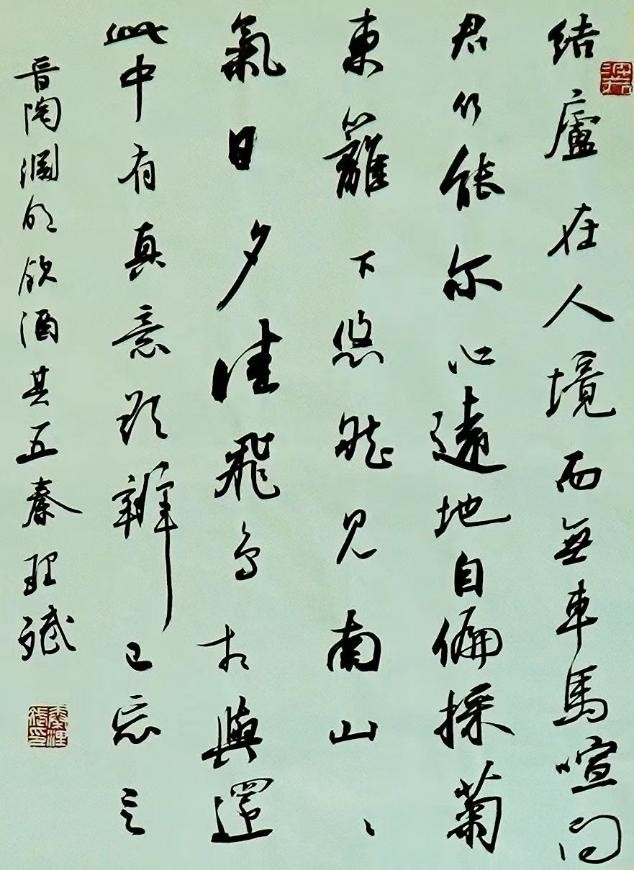 结廬在人境而無車馬喧问
君何能尔心遠地自偏採菊
東籬下悠然见南山、
氣日夕佳飛鸟相與還
此中有真意欲辨已忘言
晋陶渊明饮酒其五秦理斌